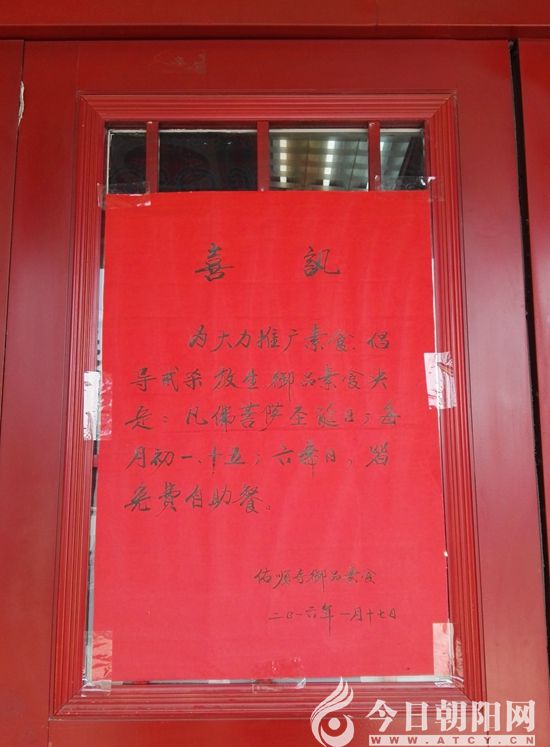 喜 訊
为大力推广素食、倡
导戒杀放生御品素食决
定：凡佛菩萨圣诞日；每
月初一、十五；六斋日，皆
免费自助餐。
佑顺寺御品素食
二0一六年一月十七日
今日朝阳网
WWW.ATCY.CN